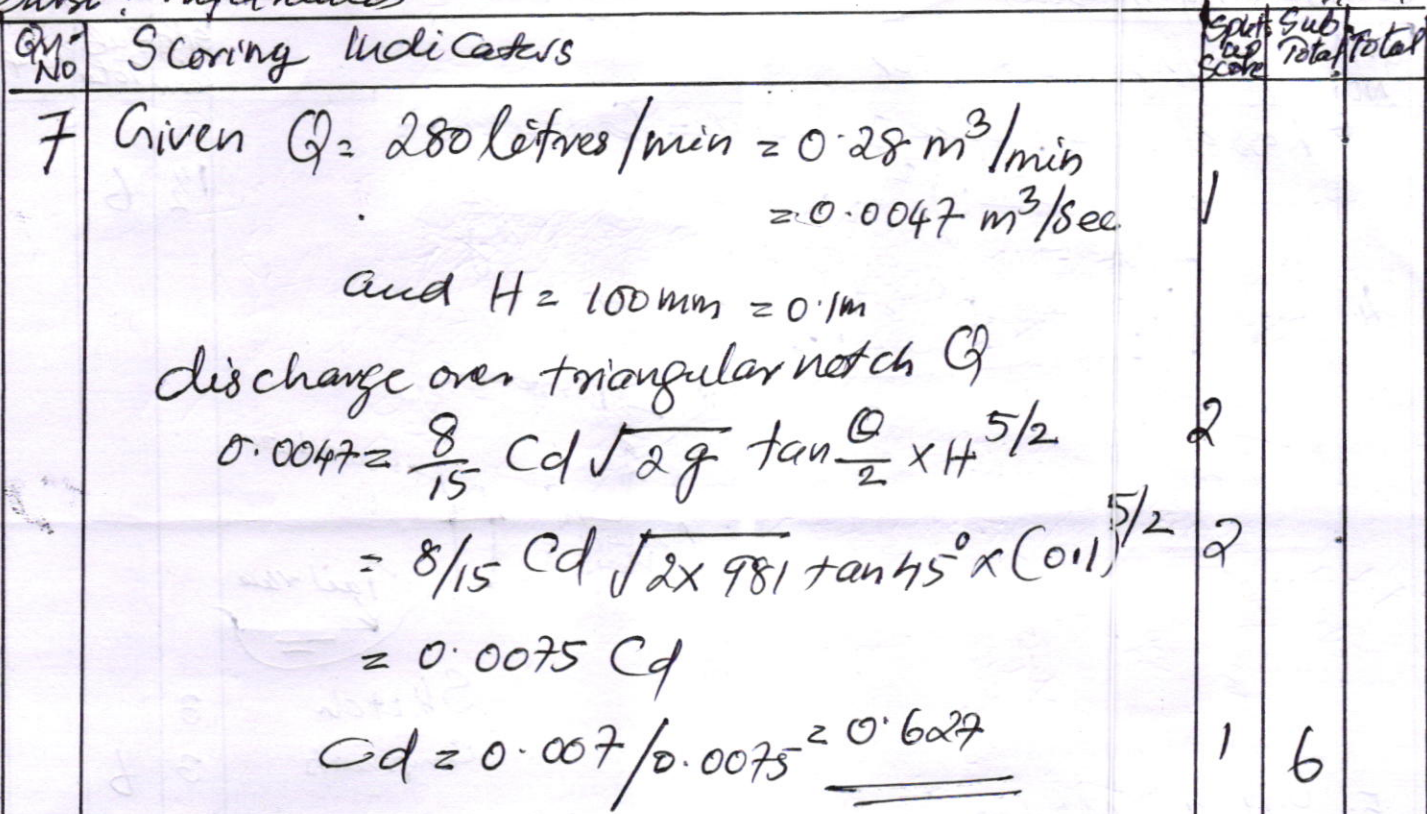 Qn. No Scoring Indicators Split up score Sub Total Total
7 Given Q = 280 litres/min = 0.28 m³/min
= 0.0047 m³/Sec 1
and H = 100mm = 0.1m
discharge over triangular notch Q
0.0047 = 8/15 Cd √2g tan θ/2 × H^5/2 2
= 8/15 Cd √2×981 tan45° × (0.1)^5/2 2
= 0.0075 Cd
Cd = 0.007/0.0075 = 0.627 1 6